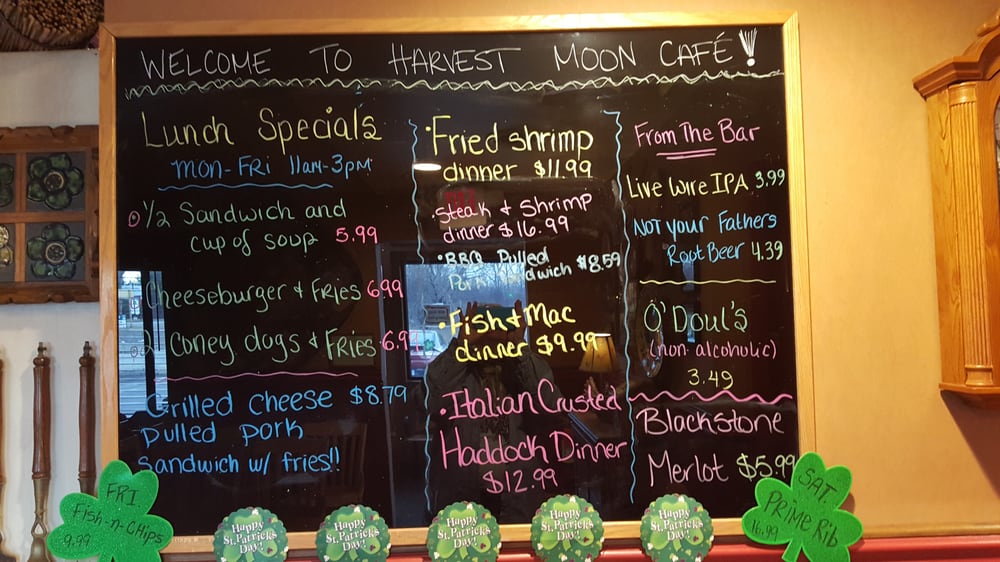 WELCOME TO HARVEST MOON CAFÉ!
Lunch Specials
MON-FRI 11AM-3PM
1/2 Sandwich and
cup of soup 5.99
Cheeseburger + Fries 6.99
2 Coney dogs & Fries 6.9
Grilled cheese $8.79
pulled pork
sandwich w/ fries!!
•Fried shrimp
dinner $11.99
•Steak & Shrimp
dinner $16.99
•BBQ Pulled
Pork dwich $8.59
•Fish & Mac
dinner $9.99
•Italian Crusted
Haddock Dinner
$12.99
From The Bar
Live Wire IPA 3.99
NOT YOUR Fathers
Root Beer 4.39
O'Doul's
(non-alcoholic)
3.49
Blackstone
Merlot $5.99
FRI
Fish-n-Chips
9.99
Happy
St. Patrick's
Day!
Happy
St. Patrick's
Day!
Happy
St. Patrick's
Day!
Happy
St. Patrick's
Day!
Happy
St. Patrick's
Day!
SAT.
PRIME Rib
16.99